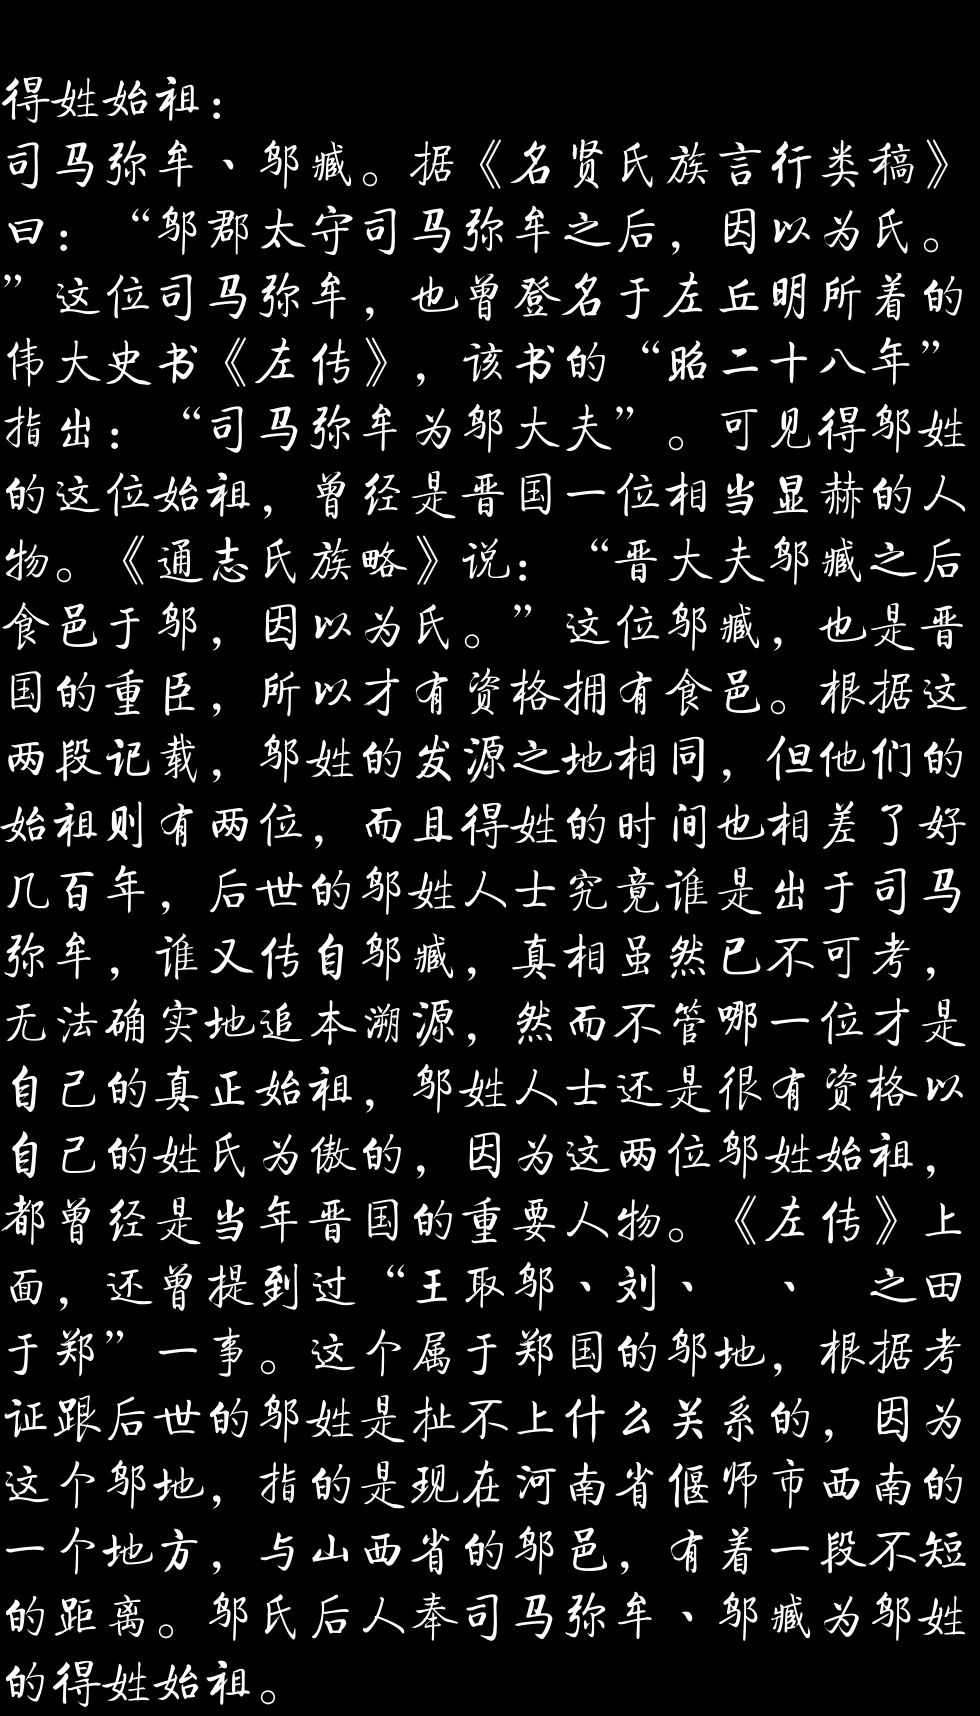 得姓始祖：
司马弥牟、邬臧。据《名贤氏族言行类稿》
曰：“邬郡太守司马弥牟之后，因以为氏。
”这位司马弥牟，也曾登名于左丘明所着的
伟大史书《左传》，该书的“昭二十八年”
指出：“司马弥牟为邬大夫”。可见得邬姓
的这位始祖，曾经是晋国一位相当显赫的人
物。《通志氏族略》说：“晋大夫邬臧之后
食邑于邬，因以为氏。”这位邬臧，也是晋
国的重臣，所以才有资格拥有食邑。根据这
两段记载，邬姓的发源之地相同，但他们的
始祖则有两位，而且得姓的时间也相差了好
几百年，后世的邬姓人士究竟谁是出于司马
弥牟，谁又传自邬臧，真相虽然已不可考，
无法确实地追本溯源，然而不管哪一位才是
自己的真正始祖，邬姓人士还是很有资格以
自己的姓氏为傲的，因为这两位邬姓始祖，
都曾经是当年晋国的重要人物。《左传》上
面，还曾提到过“王取邬、刘、　、　之田
于郑”一事。这个属于郑国的邬地，根据考
证跟后世的邬姓是扯不上什么关系的，因为
这个邬地，指的是现在河南省偃师市西南的
一个地方，与山西省的邬邑，有着一段不短
的距离。邬氏后人奉司马弥牟、邬臧为邬姓
的得姓始祖。